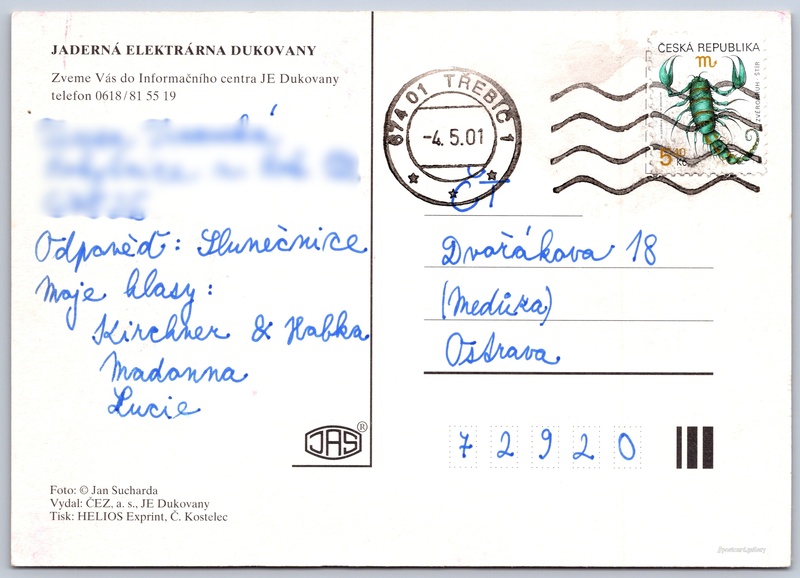 JADERNÁ ELEKTRÁRNA DUKOVANY
Zveme Vás do Informačního centra JE Dukovany
telefon 0618/81 55 19
Odpověď: Slunečnice
Moje hlasy:
Kirchner & Habka
Madonna
Lucie
JAS®
Foto: © Jan Sucharda
Vydal: ČEZ, a. s., JE Dukovany
Tisk: HELIOS Exprint, Č. Kostelec
674 01 TŘEBÍČ 1
-4.5.01
ČESKÁ REPUBLIKA
5,40 Kč
ČT
Dvořákova 18
(Medůza)
Ostrava
7 2 9 2 0
//postcard.gallery